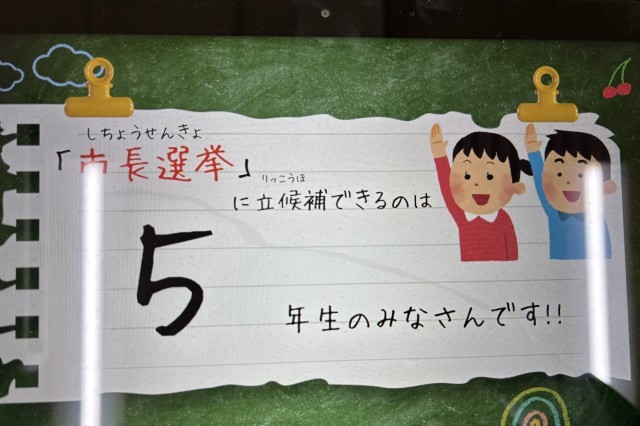 しちょうせんきょ
「市長選挙」
りっこうほ
に立候補できるのは
5
年生のみなさんです!!